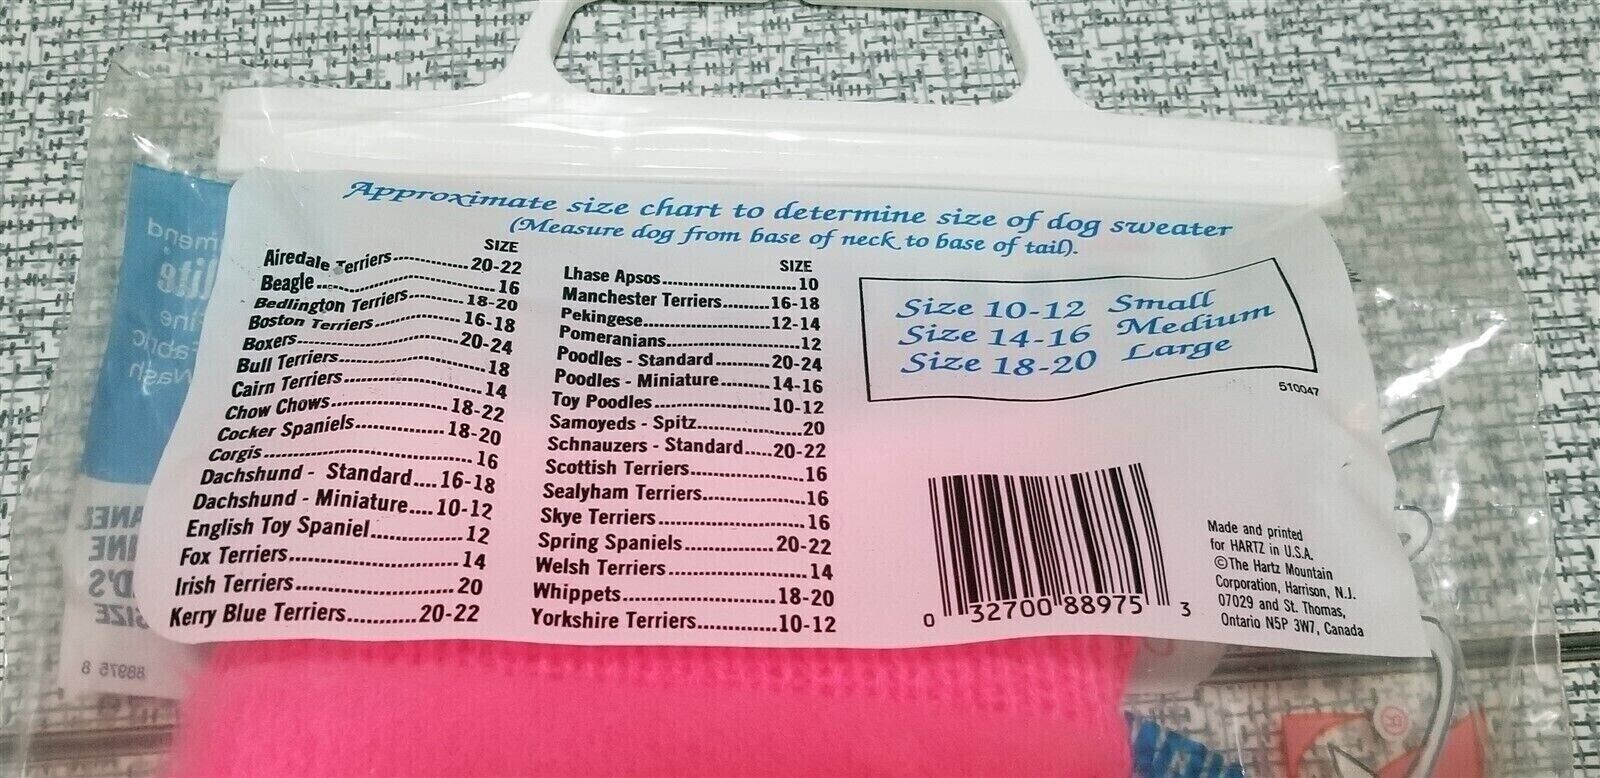 Approximate size chart to determine size of dog sweater
(Measure dog from base of neck to base of tail).
SIZE
Airedale Terriers 20-22
Beagle 16
Bedlington Terriers 18-20
Boston Terriers 16-18
Boxers 20-24
Bull Terriers 18
Cairn Terriers 14
Chow Chows 18-22
Cocker Spaniels 18-20
Corgis 16
Dachshund - Standard 16-18
Dachshund - Miniature 10-12
English Toy Spaniel 12
Fox Terriers 14
Irish Terriers 20
Kerry Blue Terriers 20-22
SIZE
Lhase Apsos 10
Manchester Terriers 16-18
Pekingese 12-14
Pomeranians 12
Poodles - Standard 20-24
Poodles - Miniature 14-16
Toy Poodles 10-12
Samoyeds - Spitz 20
Schnauzers - Standard 20-22
Scottish Terriers 16
Sealyham Terriers 16
Skye Terriers 16
Spring Spaniels 20-22
Welsh Terriers 14
Whippets 18-20
Yorkshire Terriers 10-12
Size 10-12 Small
Size 14-16 Medium
Size 18-20 Large
510047
0 32700 88975 3
Made and printed
for HARTZ in U.S.A.
©The Hartz Mountain
Corporation, Harrison, N.J.
07029 and St. Thomas,
Ontario N5P 3W7, Canada
Wash
SIZE
88975 8